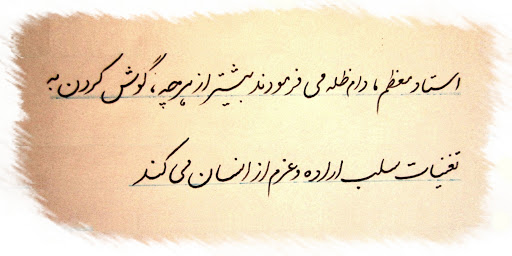 استاد معظم ما دام ظله می فرمودند بیشتر از هرچه، گوش کردن به
تغنیات سلب اراده و عزم از انسان می کند